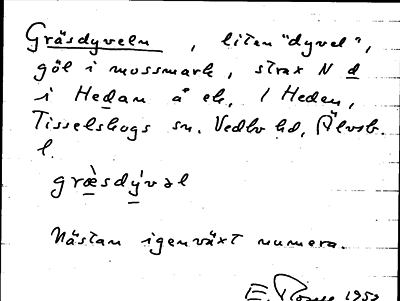 Gräsdyveln, liten "dyvel",
göl i mossmark, strax N d
i Hedan å ek. 1 Heden,
Tisselskogs sn. Vedbo hd, Älvsb.
l.
græ̀sdývəl
Nästan igenväxt numera.
E. 1952